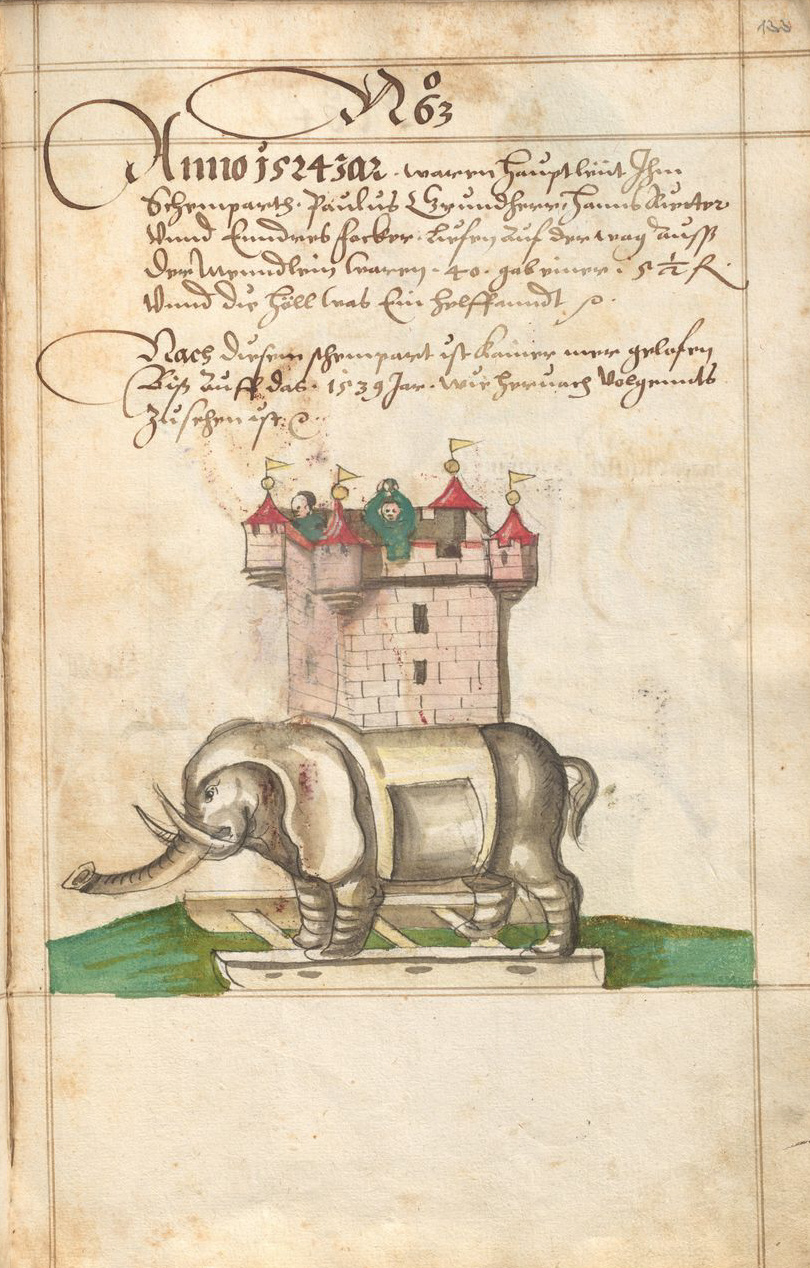 133
No 63
Anno 1524 Jar. waren Haupt leüt Jhm
Schempartt. Paulus Grundherr, Hanns Reutter
Vnnd Enndres Locker. Liefen auf der wag Auss
Der Menndlein waren. 40. gab einer. 5 1/2 fl.
Vnnd die Höll was Ein helffanndt
Nach diesem schempart ist kainer mer gelofen
Biß auff das. 1539 Jar. wie hernach Volgennts
Zu sehen ist.